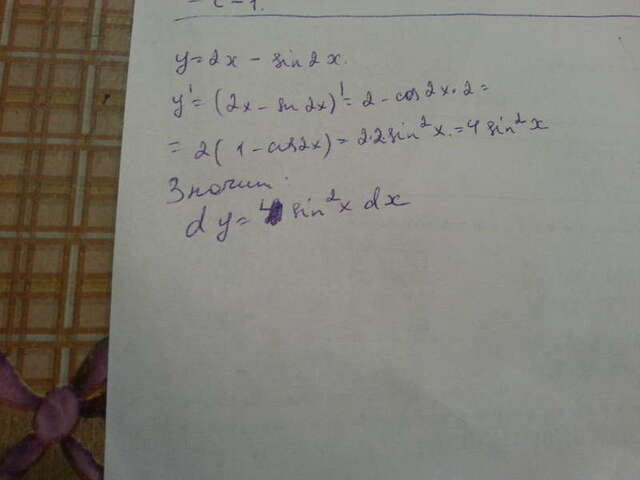 y=2x - sin2x.
y'=(2x-sin2x)'=2-cos2x·2=
=2(1-cos2x)=2·2sin²x.=4sin²x
Значит:
dy=4sin²x dx